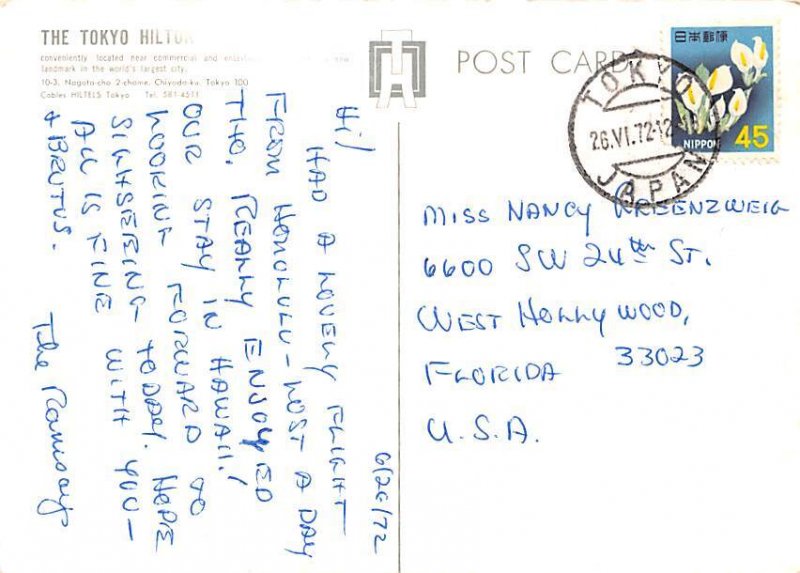 THE TOKYO HILTON
conveniently located near commercial and
landmark in the world's largest city.
10-3, Nagata-cho 2-chome, Chiyoda-ku, Tokyo 100
Cables HILTELS Tokyo Tel. 581-4511
POST CARD
日本郵便
45
NIPPON
TOKYO
26.VI.72-12
JAPAN
6/26/72
Hi!
HAD A LOVELY FLIGHT
FROM HONOLULU - LOST A DAY
THO. REALLY ENJOYED
OUR STAY IN HAWAII!
LOOKING FORWARD TO
SIGHSEEING TODAY. HOPE
ALL IS FINE WITH YOU -
& BRUTUS.
The Ramsays
MISS NANCY KREENZWEIG
6600 SW 24th ST.
WEST HOLLYWOOD,
FLORIDA 33023
U.S.A.